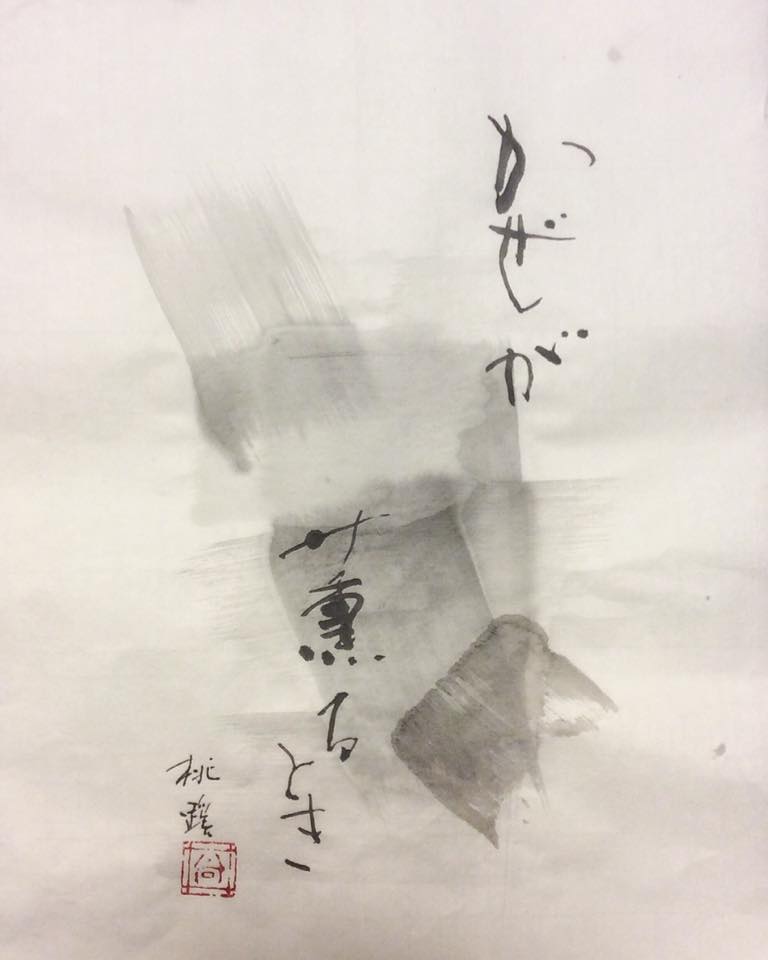 かぜが
薫るとき
桃